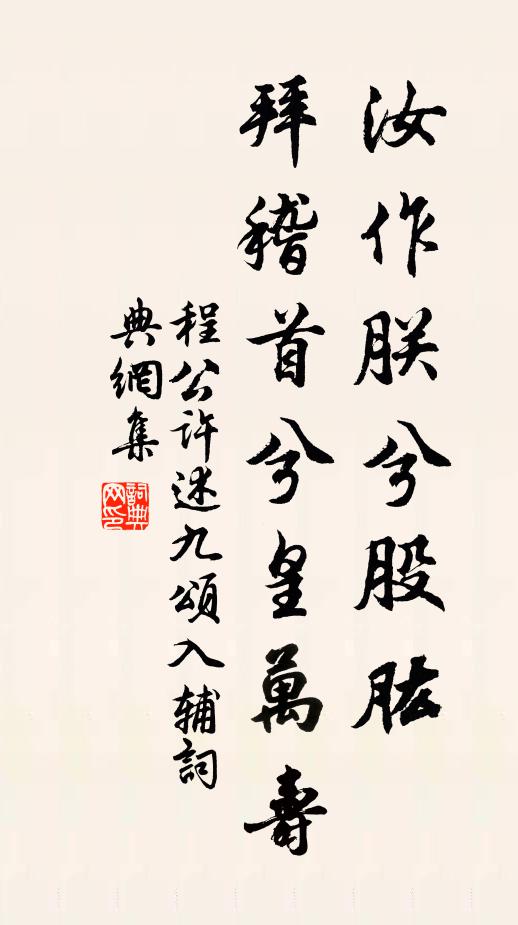 汝作朕兮股肱
拜稽首兮皇萬壽
程公許述九頌入輔詞
典網集
詞典網印